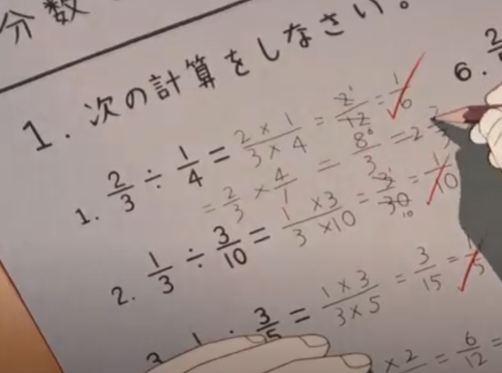 分数
1. 次の計算をしなさい。
1. 2/3 ÷ 1/4 = 2×1/3×4 = 2/12 = 1/6
= 2/3 × 4/1 = 8/3 = 2
2. 1/3 ÷ 3/10 = 1×3/3×10 = 3/30 = 1/10
÷ 3/5 = 1×3/3×5 = 3/15 = 1/5
×2 = 6/12 =
6.